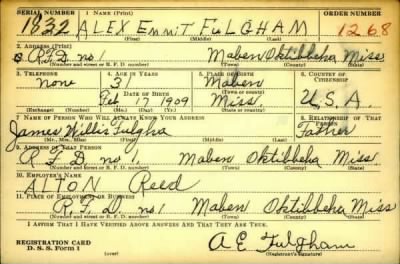 SERIAL NUMBER 1. NAME (Print) ORDER NUMBER
1832 ALEX Emmit FulGHAM 1268
(First) (Middle) (Last)
2. ADDRESS (Print)
R.F.D. no 1 Maben Oktibbeha Miss
(Number and street or R. F. D. number) (Town) (County) (State)
3. TELEPHONE 4. AGE IN YEARS 5. PLACE OF BIRTH 6. COUNTRY OF CITIZENSHIP
none 31 Maben
DATE OF BIRTH (Town or county)
Feb 17 1909 Miss. U.S.A.
(Exchange) (Number) (Mo.) (Day) (Yr.) (State or country)
7. NAME OF PERSON WHO WILL ALWAYS KNOW YOUR ADDRESS 8. RELATIONSHIP OF THAT PERSON
James Willis Fulgham Father
(Mr., Mrs., Miss) (First) (Middle) (Last)
9. ADDRESS OF THAT PERSON
R.F.D no 1, Maben Oktibbeha Miss
(Number and street or R. F. D. number) (Town) (County) (State)
10. EMPLOYER'S NAME
ALTON Reed
11. PLACE OF EMPLOYMENT OR BUSINESS
R.F.D. no 1 Maben Oktibbeha Miss
(Number and street or R. F. D. number) (Town) (County) (State)
I AFFIRM THAT I HAVE VERIFIED ABOVE ANSWERS AND THAT THEY ARE TRUE.
REGISTRATION CARD
D. S. S. Form 1 (over) A E Fulgham
(Registrant's signature)